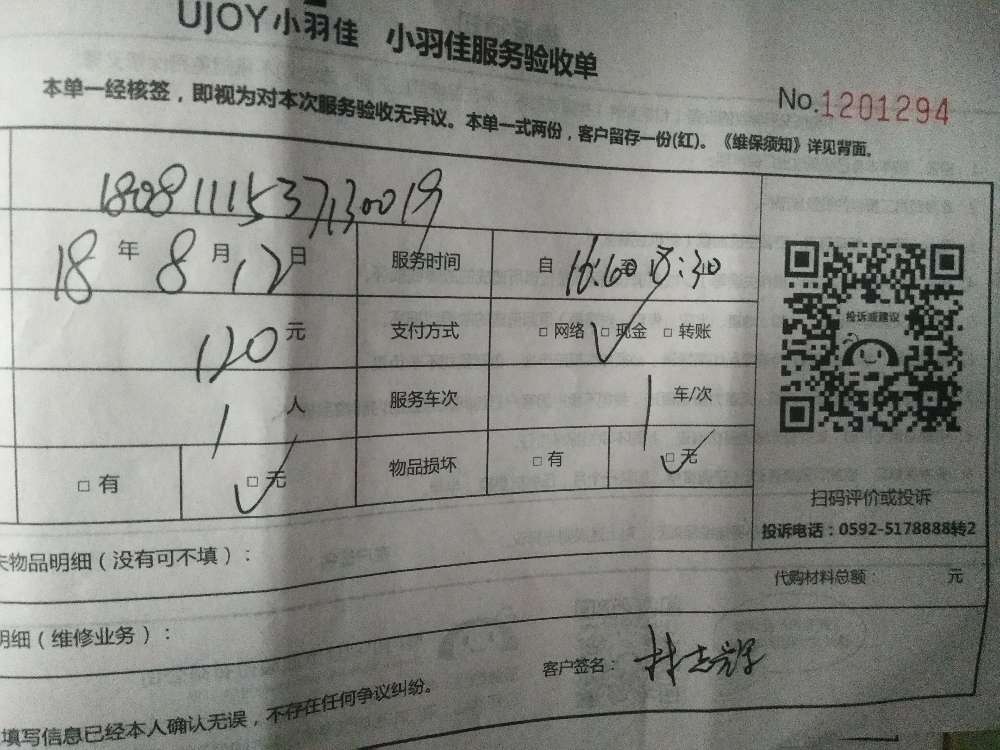 UJOY小羽佳 小羽佳服务验收单
本单一经核签，即视为对本次服务验收无异议。本单一式两份，客户留存一份(红)。《维保须知》详见背面。
No.1201294
18081115373130019
18年8月12日 服务时间 自 16:00至18:30
120元 支付方式 □网络 □现金 □转账
1人 服务车次 1车/次
□有 □无 物品损坏 □有 □无
投诉或建议
扫码评价或投诉
投诉电话：0592-5178888转2
失物品明细（没有可不填）：
代购材料总额： 元
明细（维修业务）：
客户签名：林志辉
填写信息已经本人确认无误，不存在任何争议纠纷。